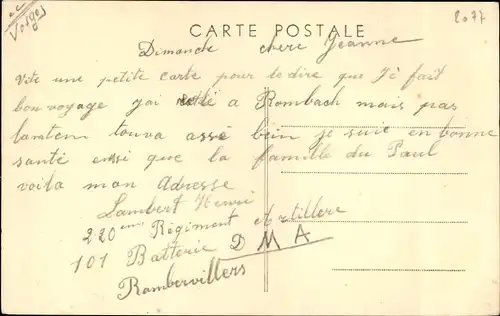 Vosges
CARTE POSTALE
2077
Dimanche chere Jeanne
Vite une petite carte pour te dire que J'é fait
bon voyage j'ai a Rombach mais pas
lantem touva assé bein je suie en bonne
santé ensi que la famille du Paul
voila mon Adresse
Lambert Henri
220eme Régiment Artillere
101 Batterie D M A
Rambervillers